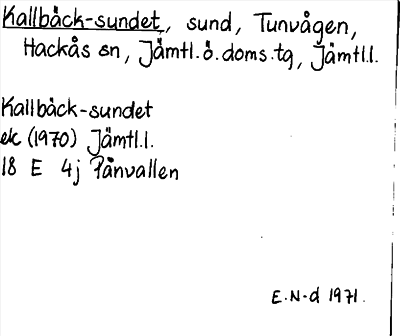 Kallbäck-sundet, sund, Tunvågen,
Hackås sn, Jämtl.ö.doms.tg, Jämtl.l.
Kallbäck-sundet
ek (1970) Jämtl.l.
18 E 4j Pånvallen
E.N-d 1971.